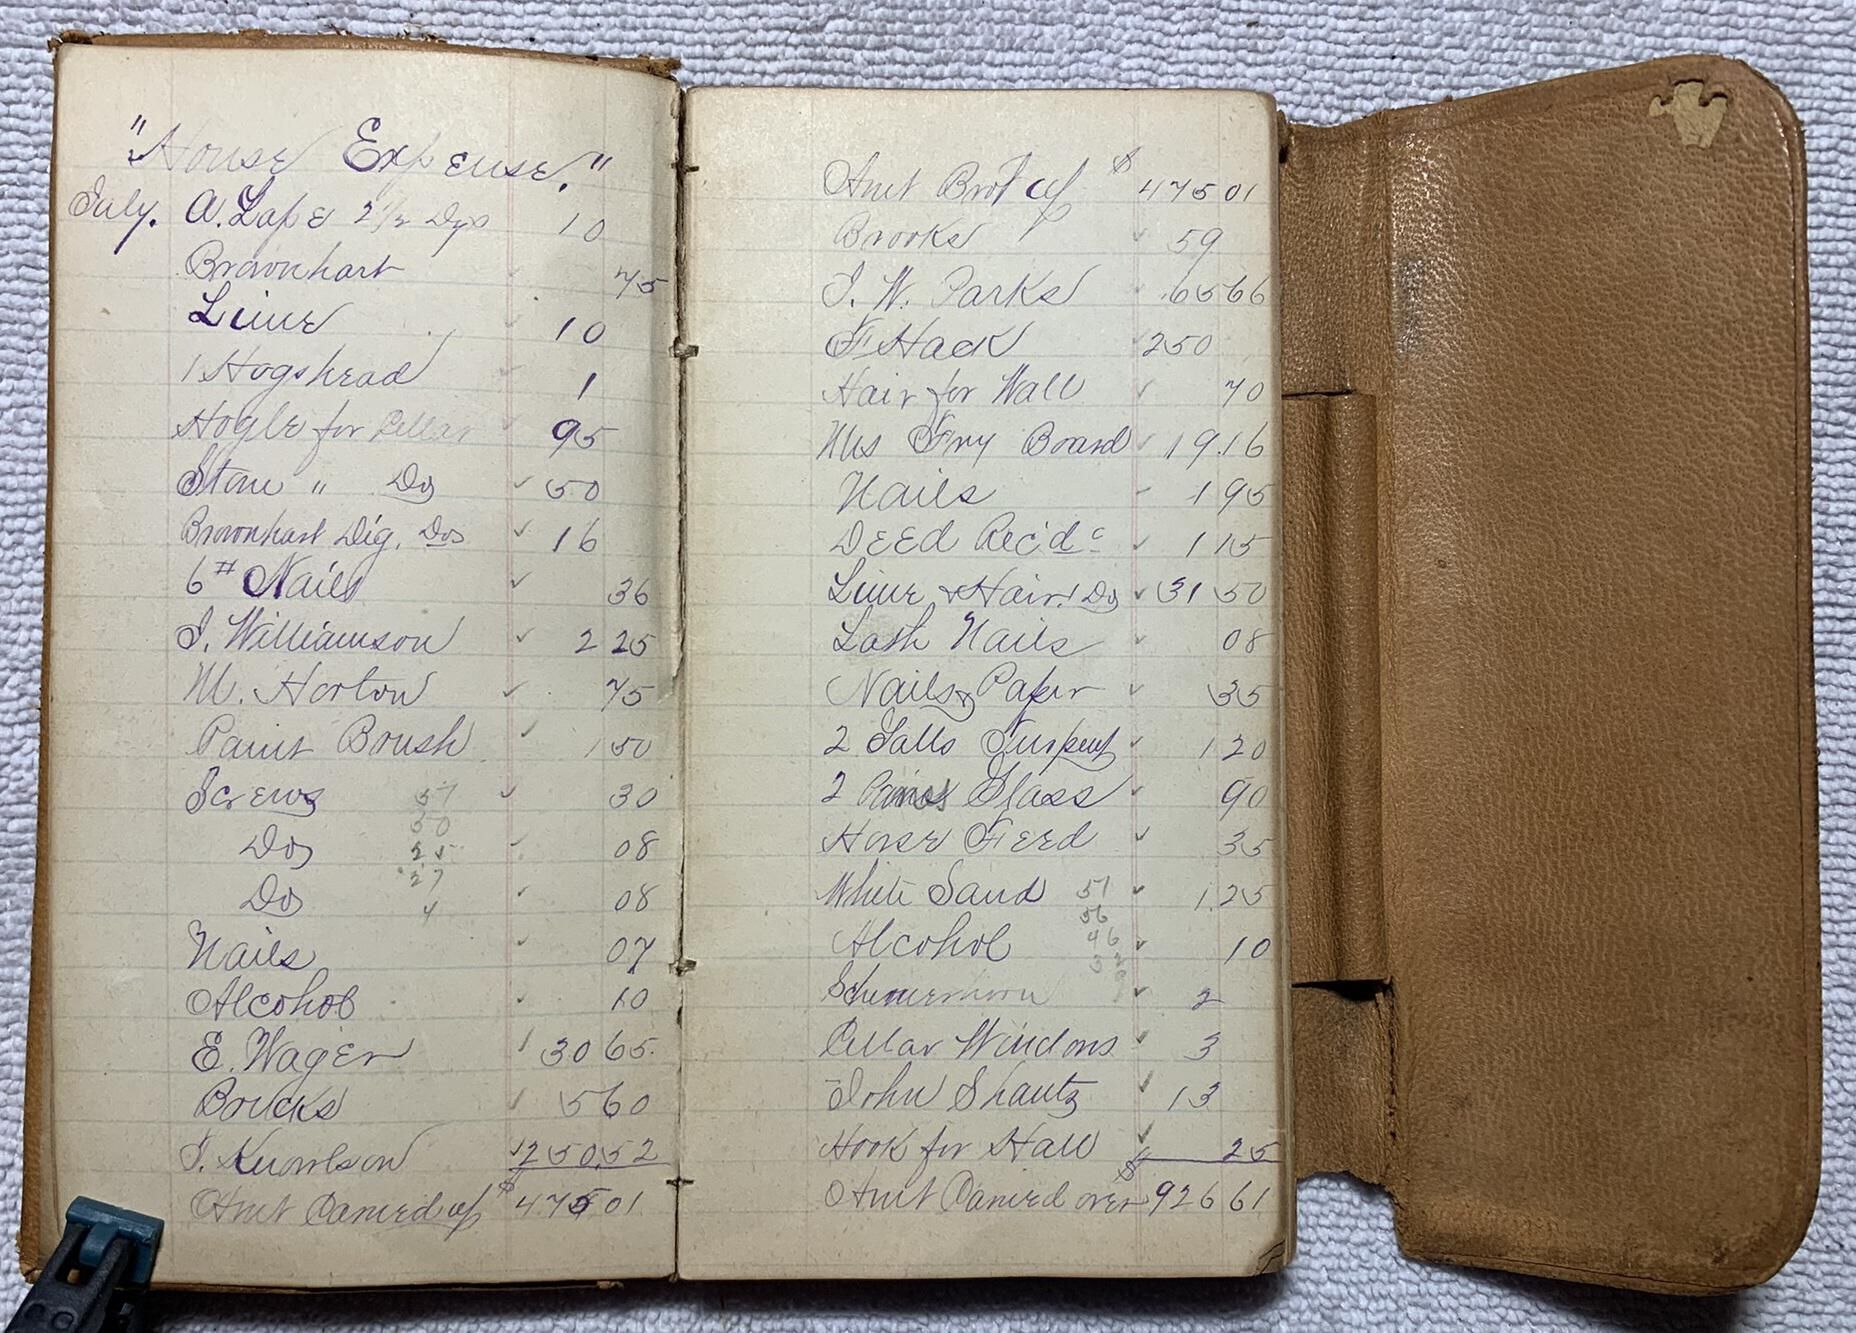 "House Expense."
July. A. Lape 2 1/2 Dys 10
Brownhart 75
Lime 10
1 Hogshead 1
Hogle for Cellar 95
Stone " Do 50
Brownhart Dig. Do 16
6# Nails 36
J. Williamson 2 25
M. Horton 75
Paint Brush 1 50
Screws 37 30
30
Do 25 08
27
Do 4 08
Nails 07
Alcohol 10
E. Wager 30 65
Bricks 5 60
J. Knowlson 250.52
Amt Carried up $ 475 01
Amt Brot up $ 475 01
Brooks 59
J. W. Parks 65 66
F. Hack 250
Hair for Wall 70
Mrs Fry Board 19.16
Nails 1 95
DEED Rec'd c 1 15
Lime & Hair Do 31 50
Lath Nails 08
Nails & Paper 35
2 Galls Turpent 1 20
2 Panes Glass 90
Horse Feed 35
White Sand 51 1.25
56
Alcohol 46 10
2
Cellar Windows 3
John Shautz 13
Hook for Hall 25
Amt Carried over $ 926 61